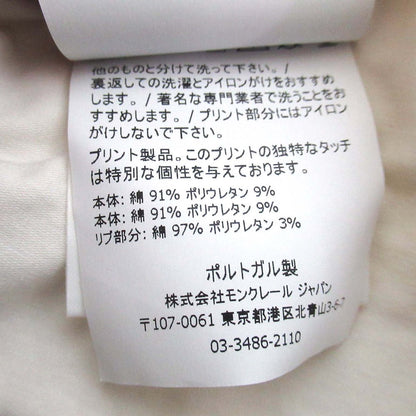 他のものと分けて洗って下さい。/
裏返しての洗濯とアイロンがけをおすすめ
します。/ 著名な専門業者で洗うことをお
すすめします。/ プリント部分にはアイロン
がけしないで下さい。
プリント製品。このプリントの独特なタッチ
は特別な個性を与えております。
本体: 綿 91% ポリウレタン 9%
本体: 綿 91% ポリウレタン 9%
リブ部分: 綿 97% ポリウレタン 3%
ポルトガル製
株式会社モンクレール ジャパン
〒107-0061 東京都港区北青山3-6-7
03-3486-2110